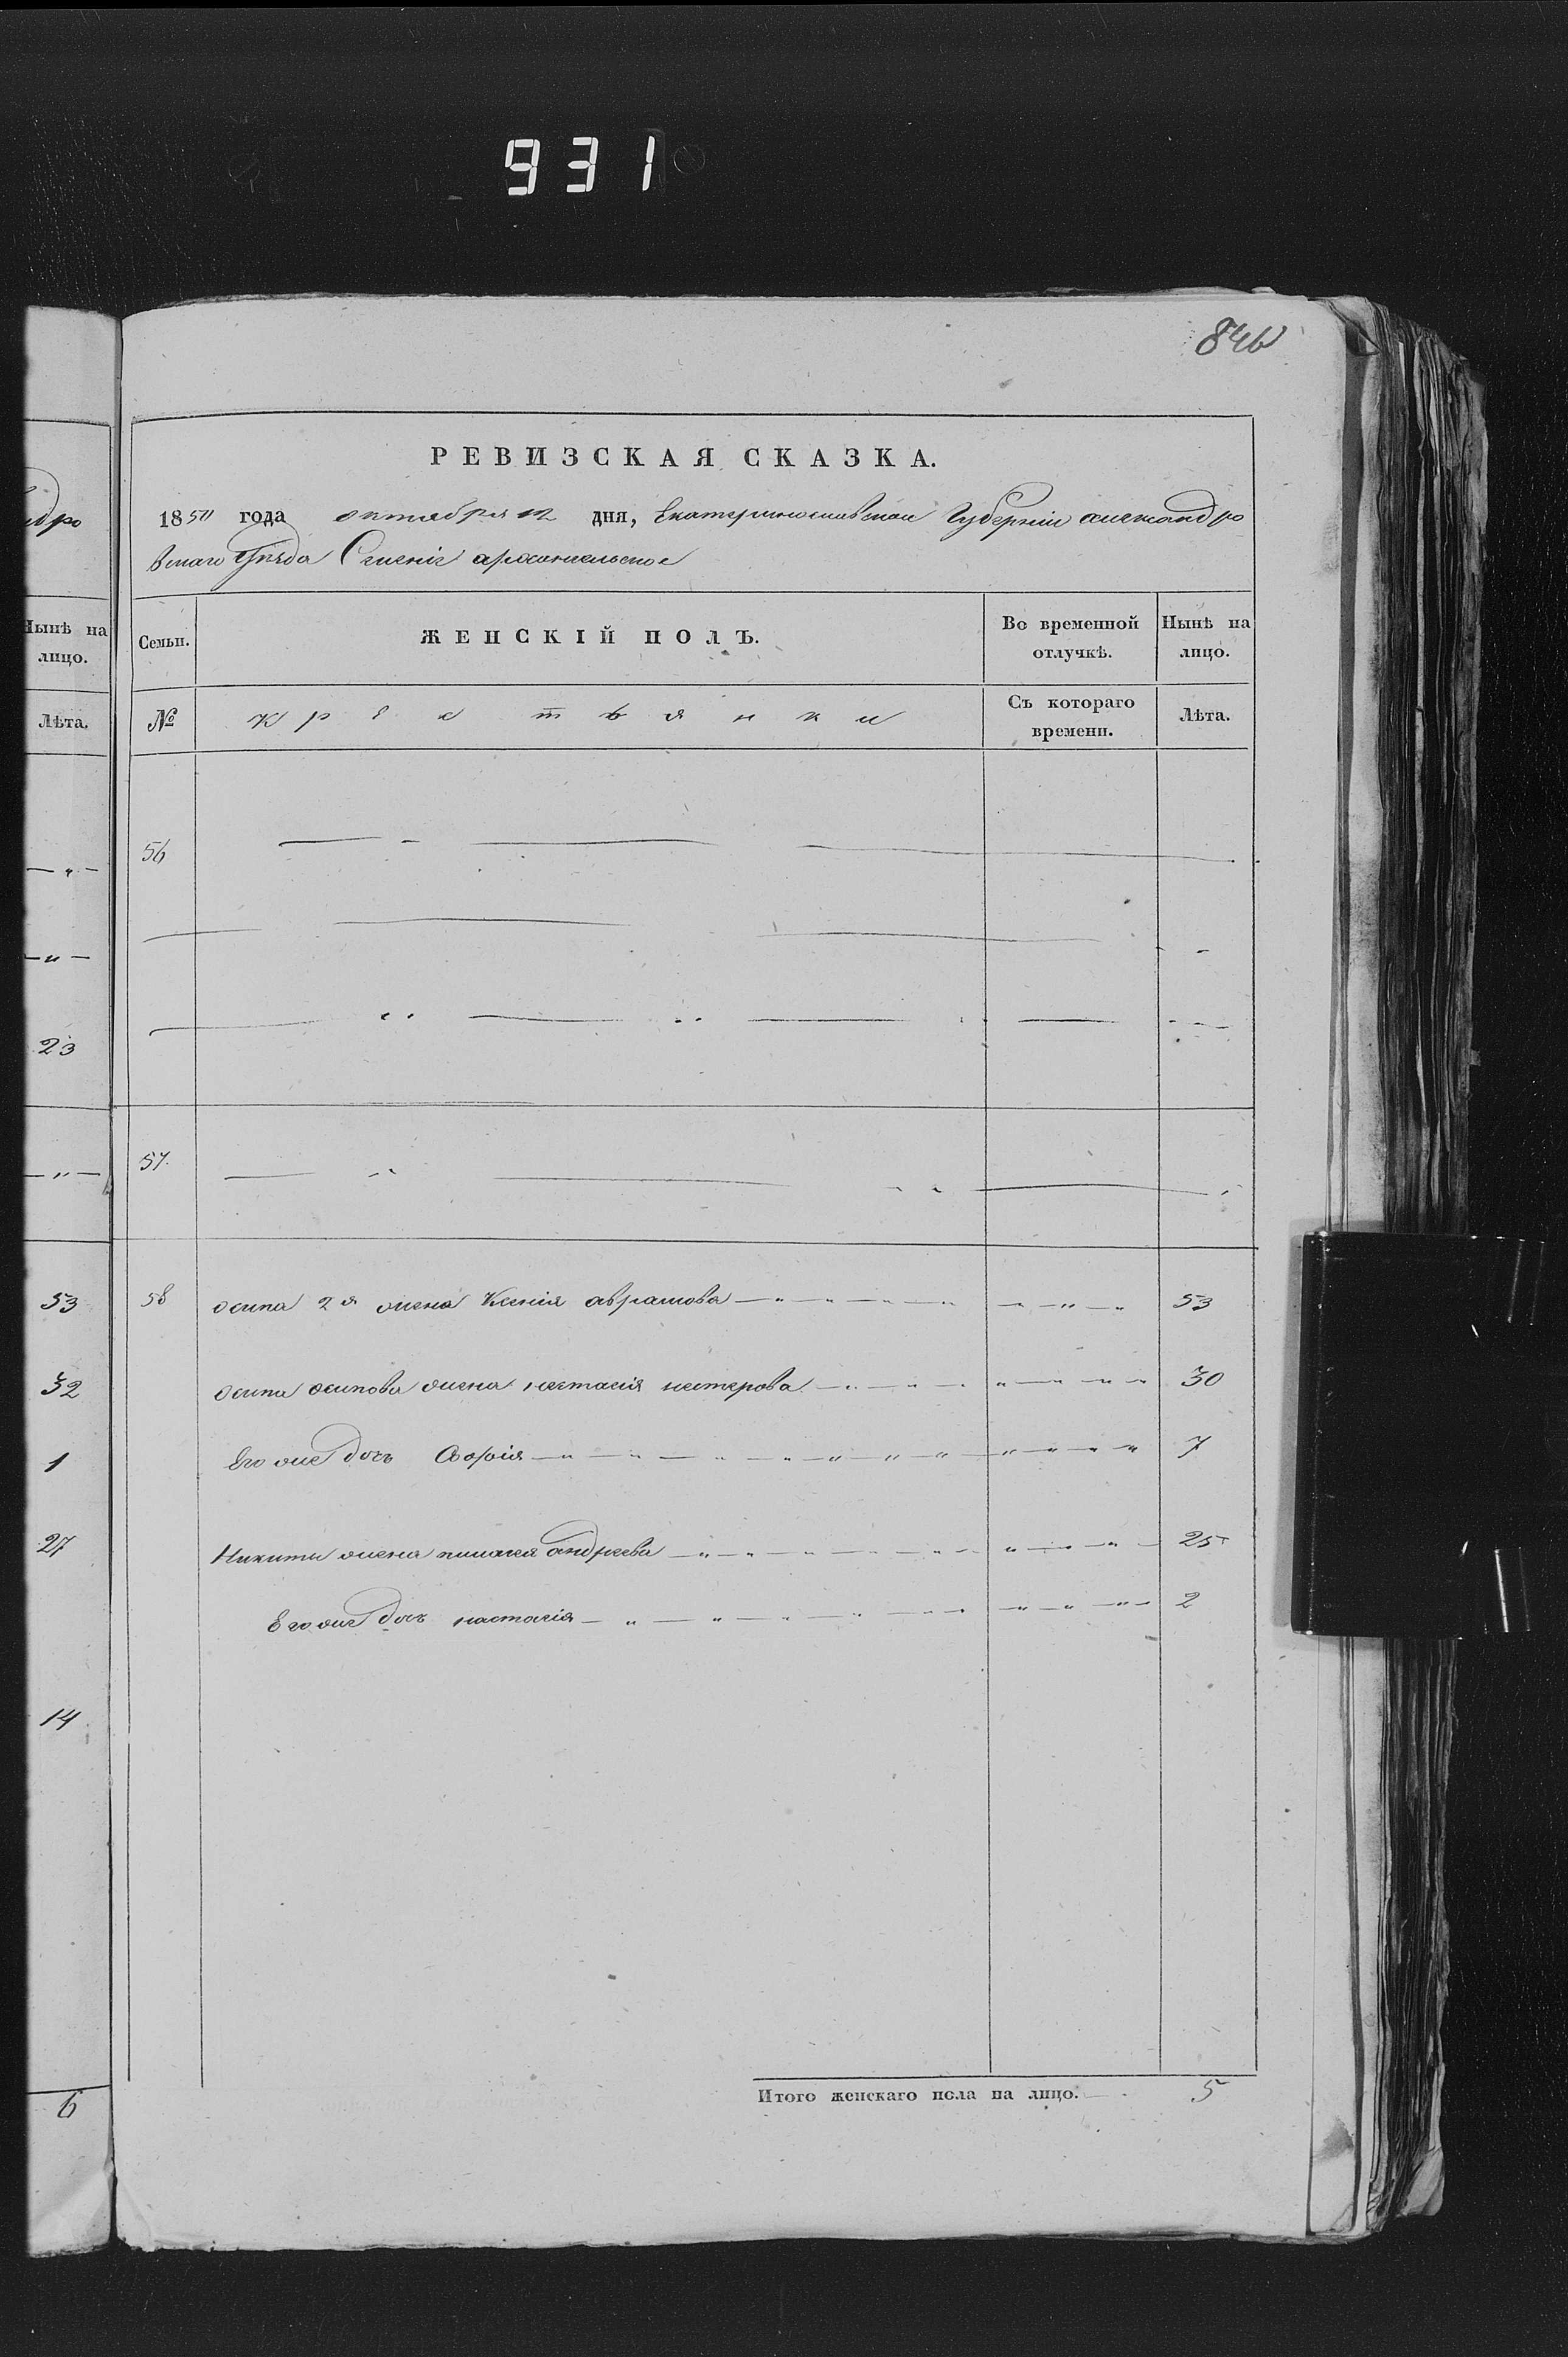 931
846
РЕВИЗСКАЯ СКАЗКА.
1850 года октября 12 дня, Екатеринославской Губерніи александро
вскаго Уѣзда Селеніе архангельское
дро
Нынѣ на лицо.
Лѣта.
Семьи.
ЖЕНСКІЙ ПОЛЪ.
Во временной отлучкѣ.
Нынѣ на лицо.
№
Крестьянки
Съ котораго времени.
Лѣта.
56
23
57
53 58 осипа 2я жена Ксенія аврамова 53
32 осипа осипова жена настасія нестерова 30
1 Его же дочь Софія 7
27 Никиты жена андреева 25
Его же дочь настасія 2
14
6
Итого женскаго пола на лицо. 5